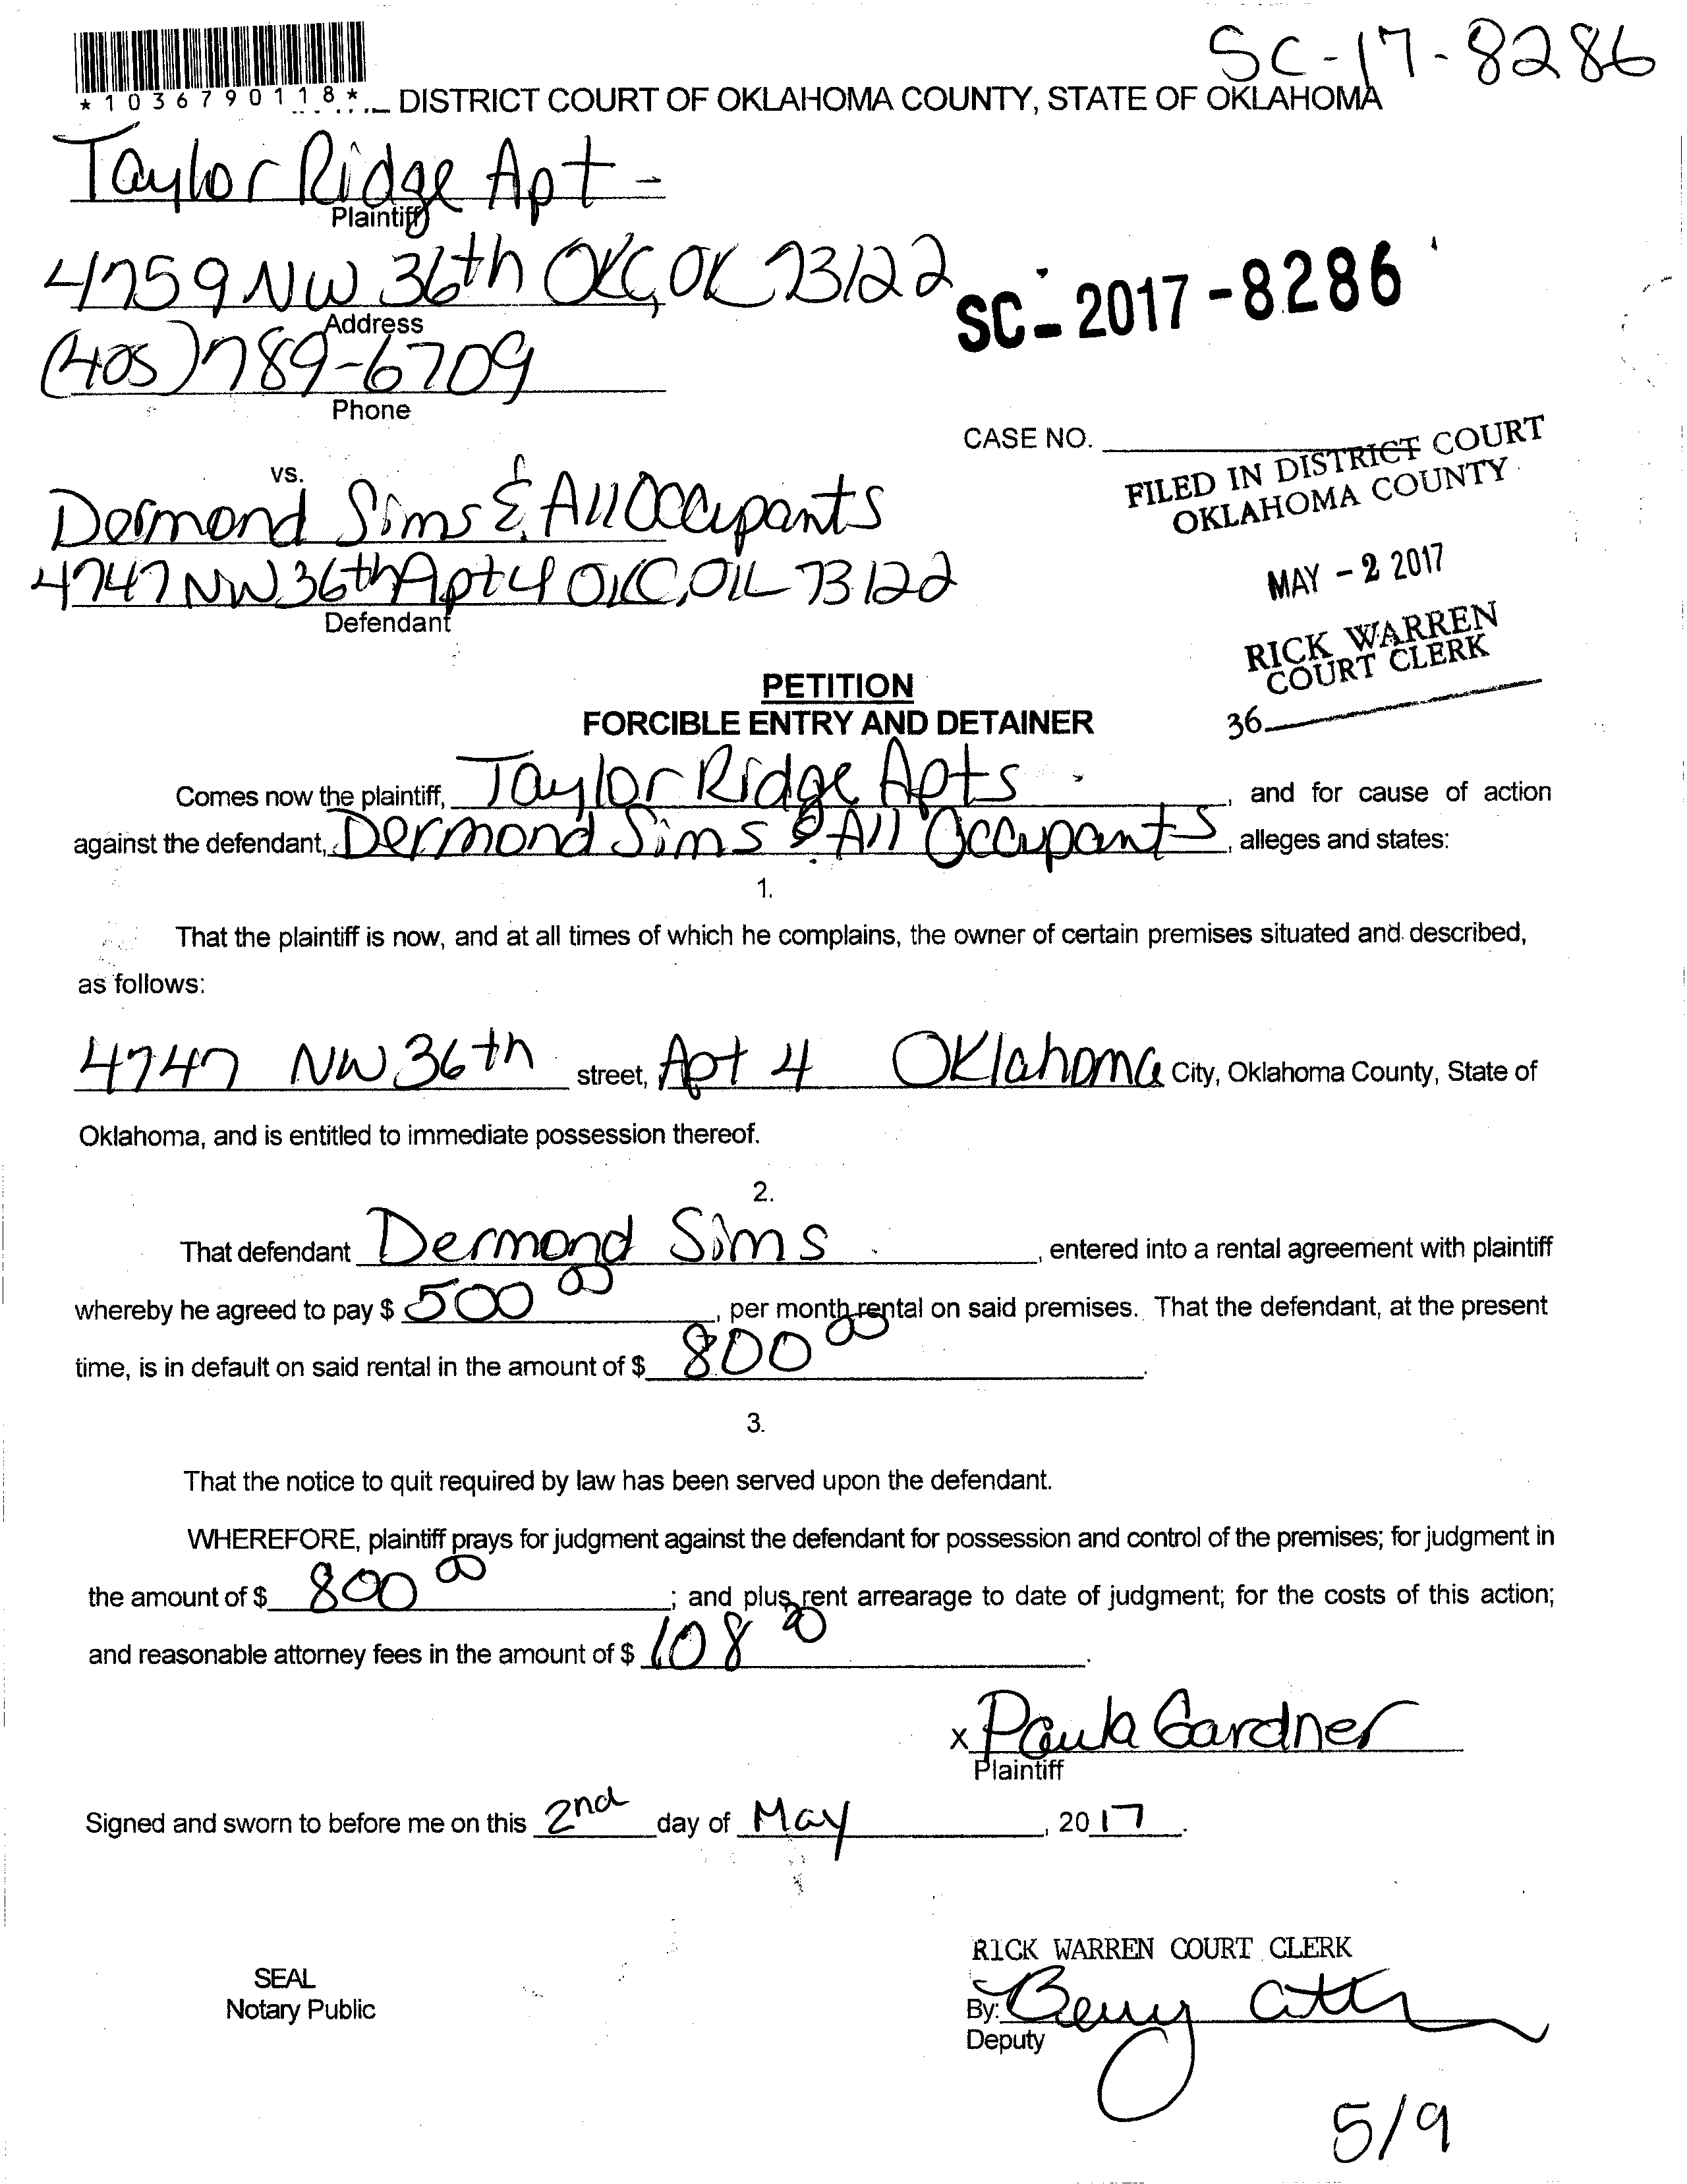 SC-17-8286
*1036790118*
DISTRICT COURT OF OKLAHOMA COUNTY, STATE OF OKLAHOMA
Taylor Ridge Apt -
Plaintiff
4759 NW 36th OKC, OK 73122
Address
SC- 2017-8286
(405) 789-6709
Phone
CASE NO.
FILED IN DISTRICT COURT
OKLAHOMA COUNTY
MAY - 2 2017
RICK WARREN
COURT CLERK
36
vs.
Dermond Sims & All Occupants
4747 NW 36th Apt 4 OKC, OK 73122
Defendant
PETITION
FORCIBLE ENTRY AND DETAINER
Comes now the plaintiff, Taylor Ridge Apts , and for cause of action
against the defendant, Dermond Sims & All Occupants, alleges and states:
1.
That the plaintiff is now, and at all times of which he complains, the owner of certain premises situated and described,
as follows:
4747 NW 36th street, Apt 4 Oklahoma City, Oklahoma County, State of
Oklahoma, and is entitled to immediate possession thereof.
2.
That defendant Dermond Sims , entered into a rental agreement with plaintiff
whereby he agreed to pay $ 500 00 , per month rental on said premises. That the defendant, at the present
time, is in default on said rental in the amount of $ 800 00 .
3.
That the notice to quit required by law has been served upon the defendant.
WHEREFORE, plaintiff prays for judgment against the defendant for possession and control of the premises; for judgment in
the amount of $ 800 00 ; and plus rent arrearage to date of judgment; for the costs of this action;
and reasonable attorney fees in the amount of $ 108 20 .
x Paula Gardner
Plaintiff
Signed and sworn to before me on this 2nd day of May , 20 17 .
RICK WARREN COURT CLERK
SEAL
Notary Public
By:
Deputy
5/9